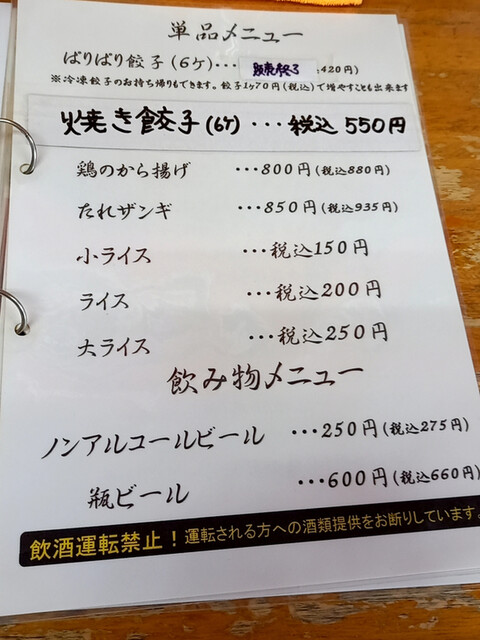 単品メニュー
ぱりぱり餃子(6ケ)... 販売終了 420円)
※冷凍餃子のお持ち帰りもできます。餃子1ケ70円(税込)で増やすことも出来ます
焼き餃子(6ケ)・・・税込550円
鶏のから揚げ ・・・800円(税込880円)
たれザンギ ・・・850円(税込935円)
小ライス ・・・税込150円
ライス ・・・税込200円
大ライス ・・・税込250円
飲み物メニュー
ノンアルコールビール ・・・250円(税込275円)
瓶ビール ・・・600円(税込660円)
飲酒運転禁止!運転される方への酒類提供をお断りしています。